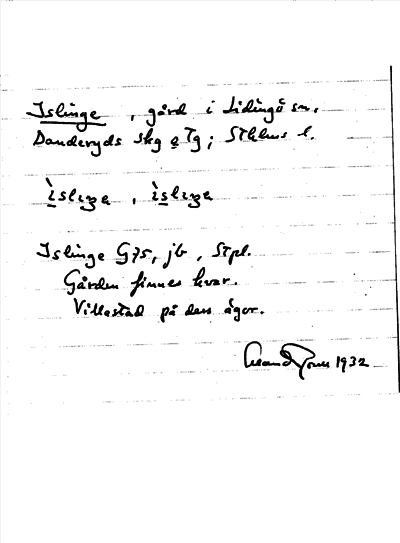 Islinge, gård i Lidingö sn.
Danderyds skg o Tg; Sthlms l.
ìslıŋe, ìslıŋe
Islinge G75, jb, Stpl.
Gården finnes kvar.
Villastad på dess ägor.
1932